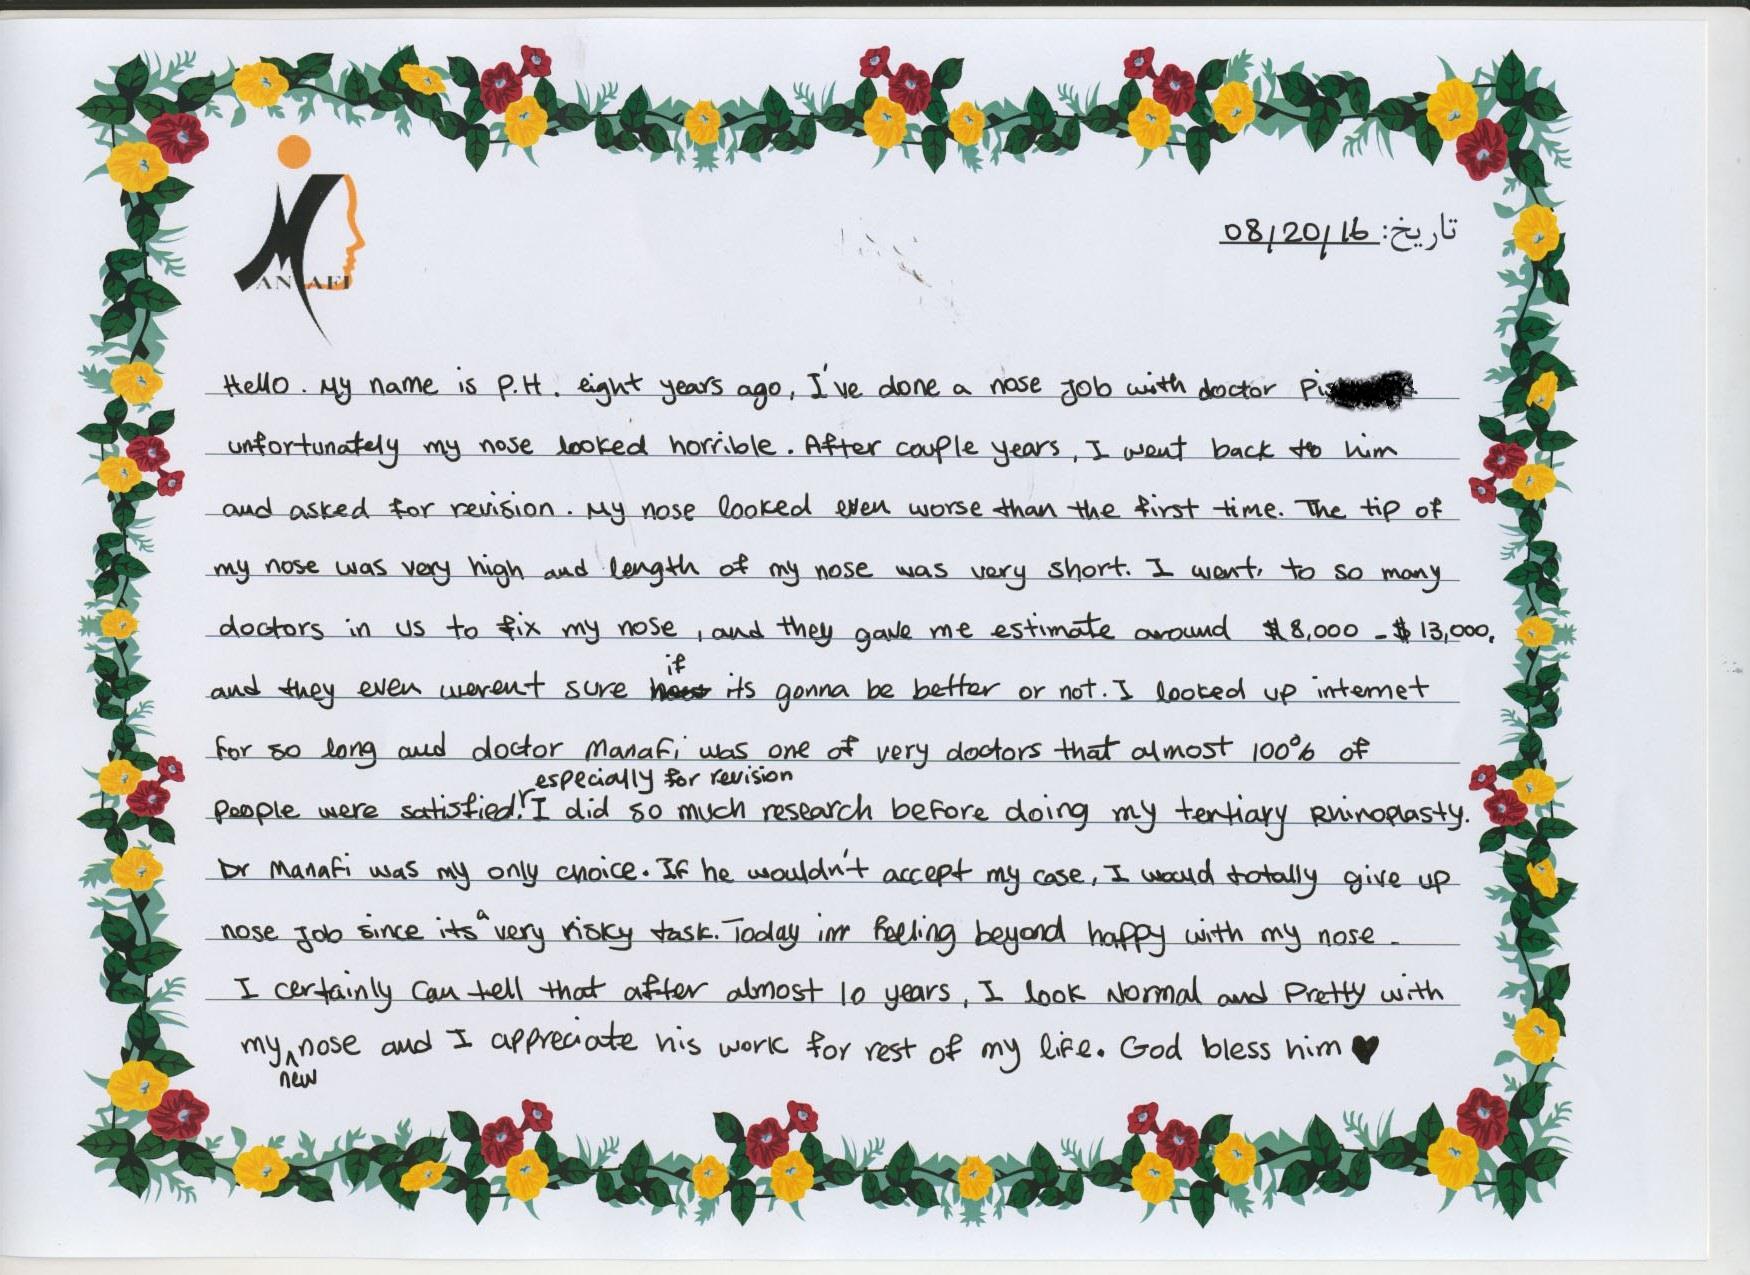 MANAFI
تاریخ: 08/20/16
Hello. My name is P.H. eight years ago, I've done a nose job with doctor Pi
unfortunately my nose looked horrible. After couple years, I went back to him
and asked for revision. My nose looked even worse than the first time. The tip of
my nose was very high and length of my nose was very short. I went, to so many
doctors in us to fix my nose, and they gave me estimate around $8,000 - $13,000,
if
and they even werent sure its gonna be better or not. I looked up internet
for so long and doctor Manafi was one of very doctors that almost 100% of
especially for revision
people were satisfied! I did so much research before doing my tertiary Rhinoplasty.
Dr Manafi was my only choice. If he wouldn't accept my case, I would totally give up
nose job since its a very risky task. Today im feeling beyond happy with my nose.
I certainly can tell that after almost 10 years, I look Normal and Pretty with
my nose and I appreciate his work for rest of my life. God bless him ♥
new